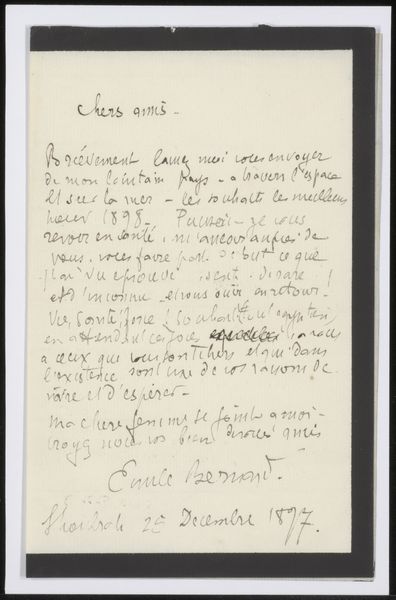 Chers amis -
Brièvement laissez moi vous envoyer
de mon lointain pays - a travers l'espace
et sur la mer - les souhaits les meilleurs
pour 1898. Puissé-je vous
revoir en santé, m'asseoir auprès de
vous, vous faire part de tout ce que
j'ai vu éprouvé senti de rare
et d'inconnu et vous ouïr en retour.
Vie, Santé, Joie !
en attendant ces joies à vous
a ceux que vous sont chers et qui dans
l'existence sont une de vos raisons de
vivre et d'espérer -
Ma chère femme se joint a moi -
croyez nous vos bien dévoués amis
Emile Bernard.
25 Decembre 1897.